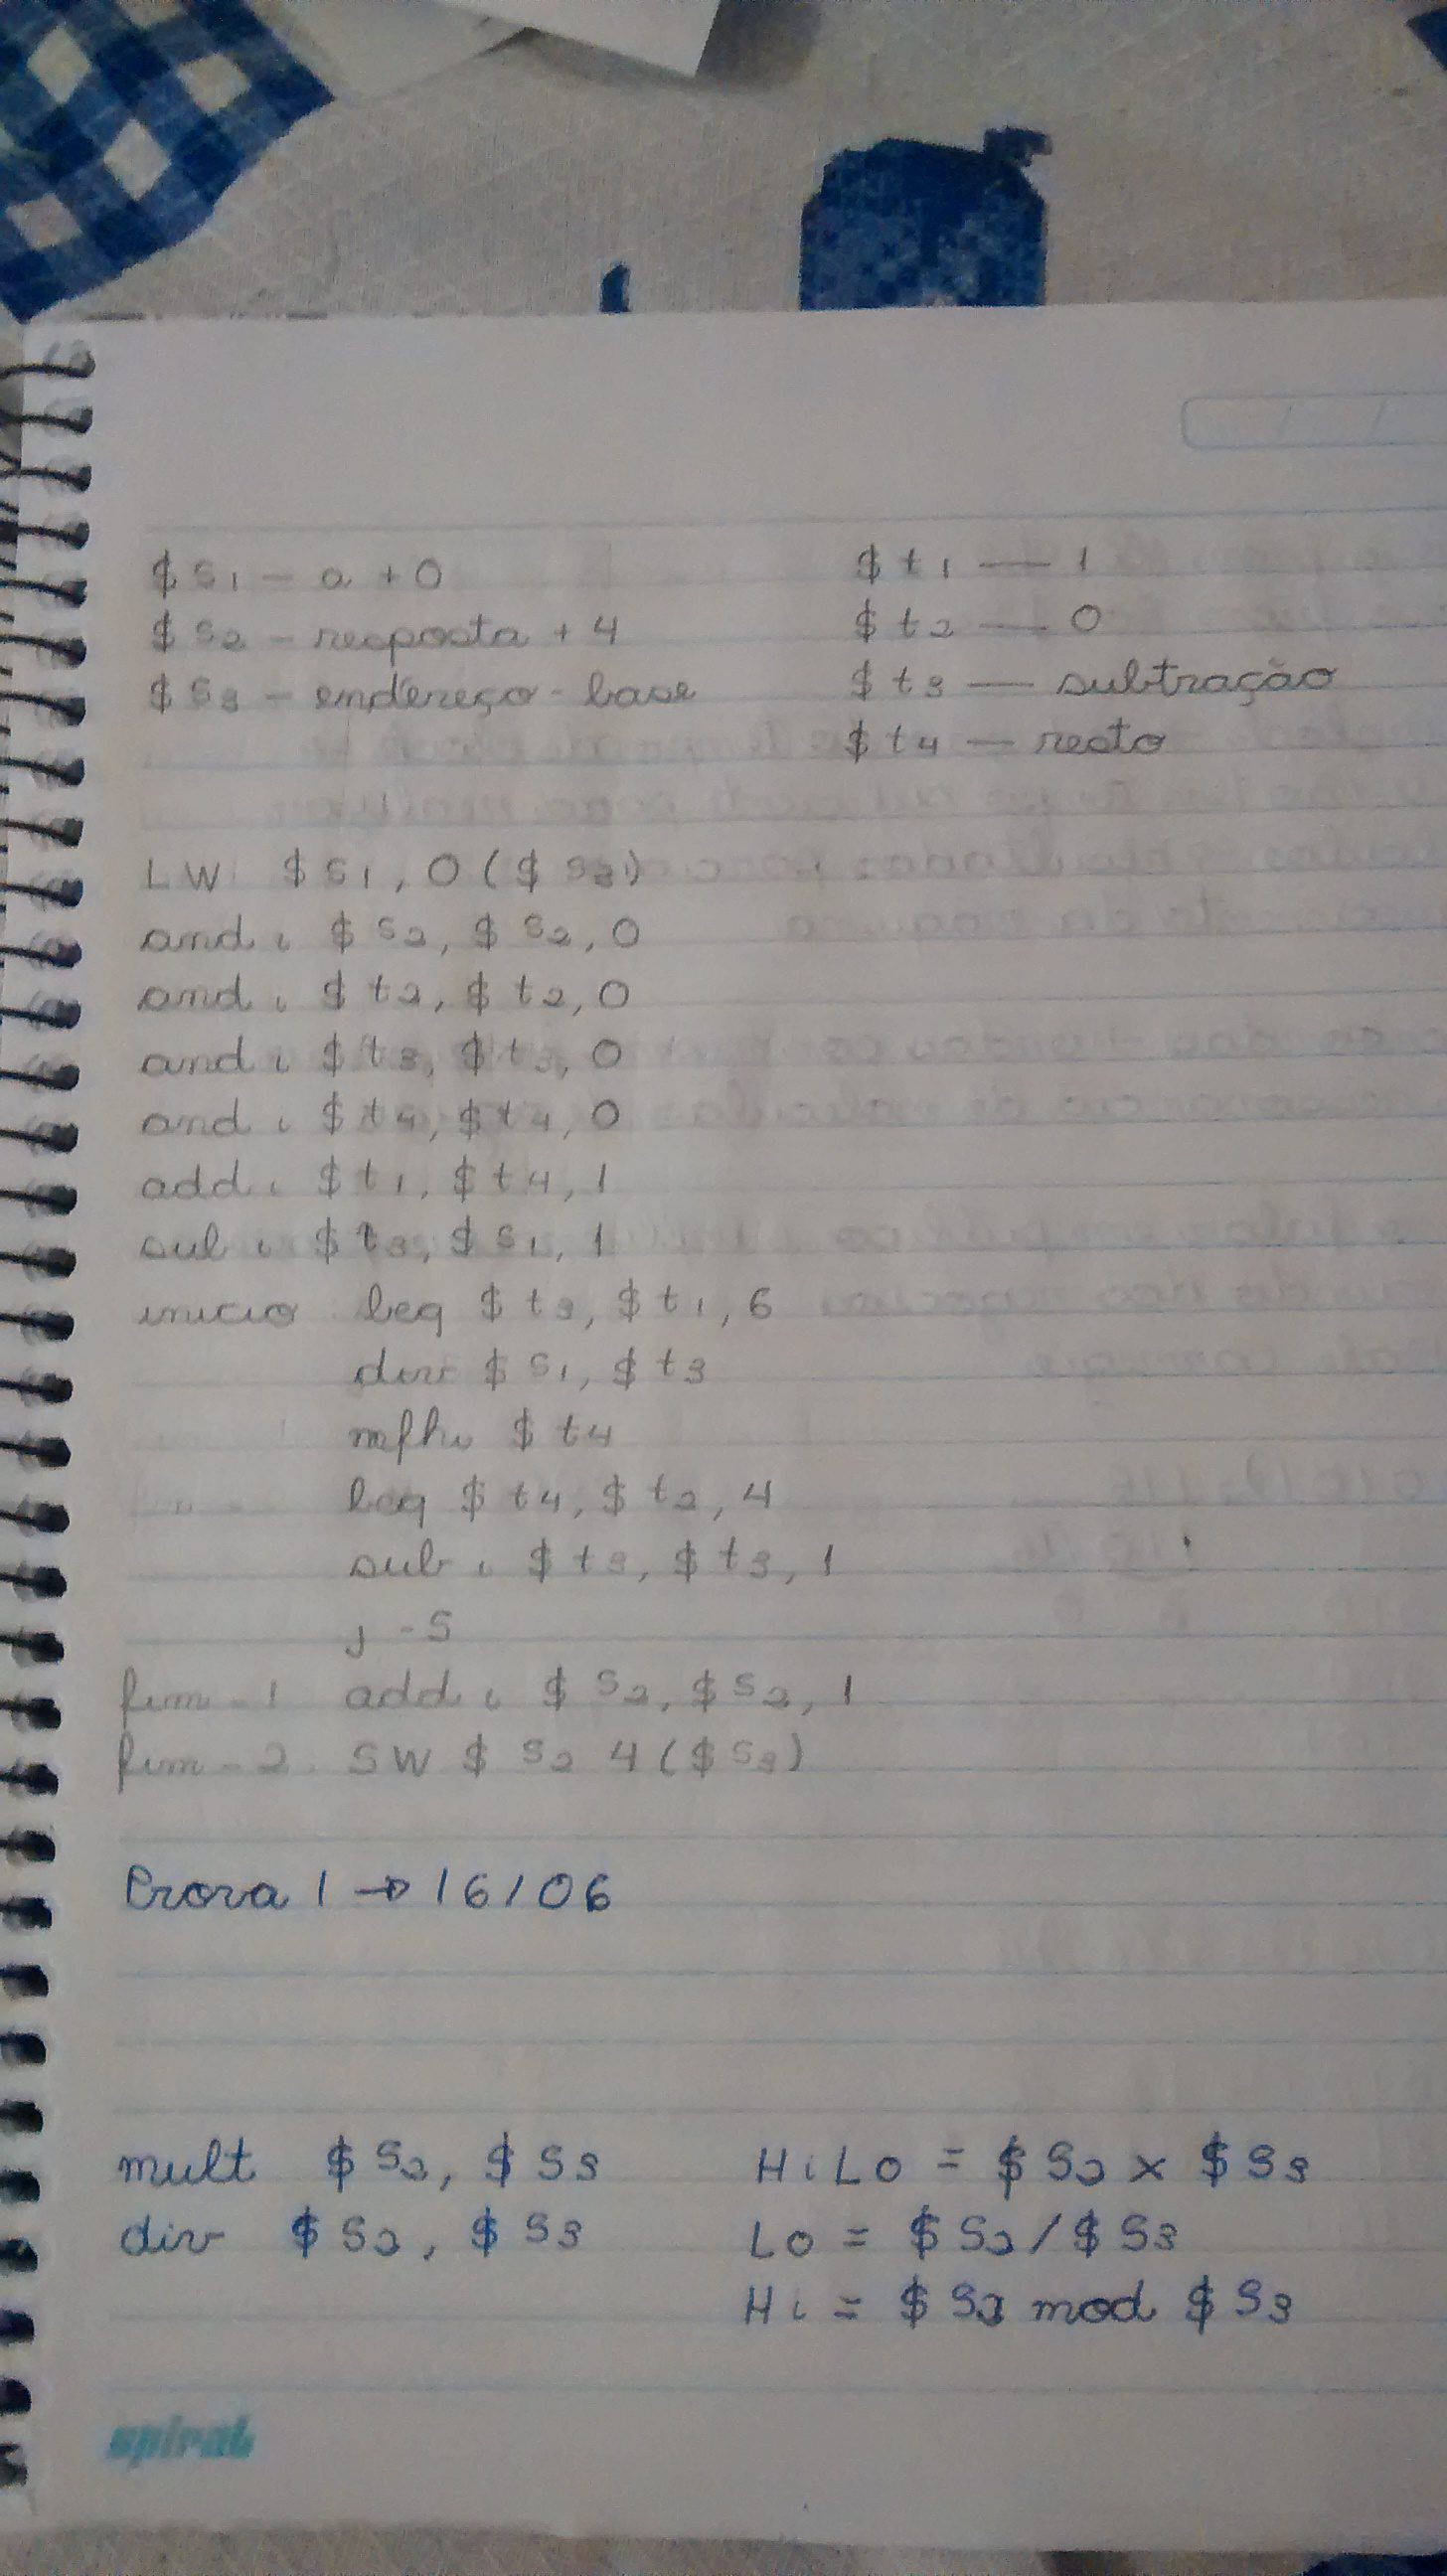 $s1 - a + 0
$s2 - resposta + 4
$s3 - endereço-base
$t1 — 1
$t2 — 0
$t3 — subtração
$t4 — resto
LW $s1, 0($s3)
andi $s2, $s2, 0
andi $t2, $t2, 0
andi $t3, $t3, 0
andi $t4, $t4, 0
addi $t1, $t4, 1
subi $t3, $s1, 1
inicio beq $t3, $t1, 6
div $s1, $t3
mfhi $t4
beq $t4, $t2, 4
subi $t3, $t3, 1
j -5
fim-1 addi $s2, $s2, 1
fim-2. SW $s2 4($s3)
Prova 1 → 16/06
mult $s2, $s3 HiLo = $s2 x $s3
div $s2, $s3 Lo = $s2/$s3
Hi = $s2 mod $s3
spiral